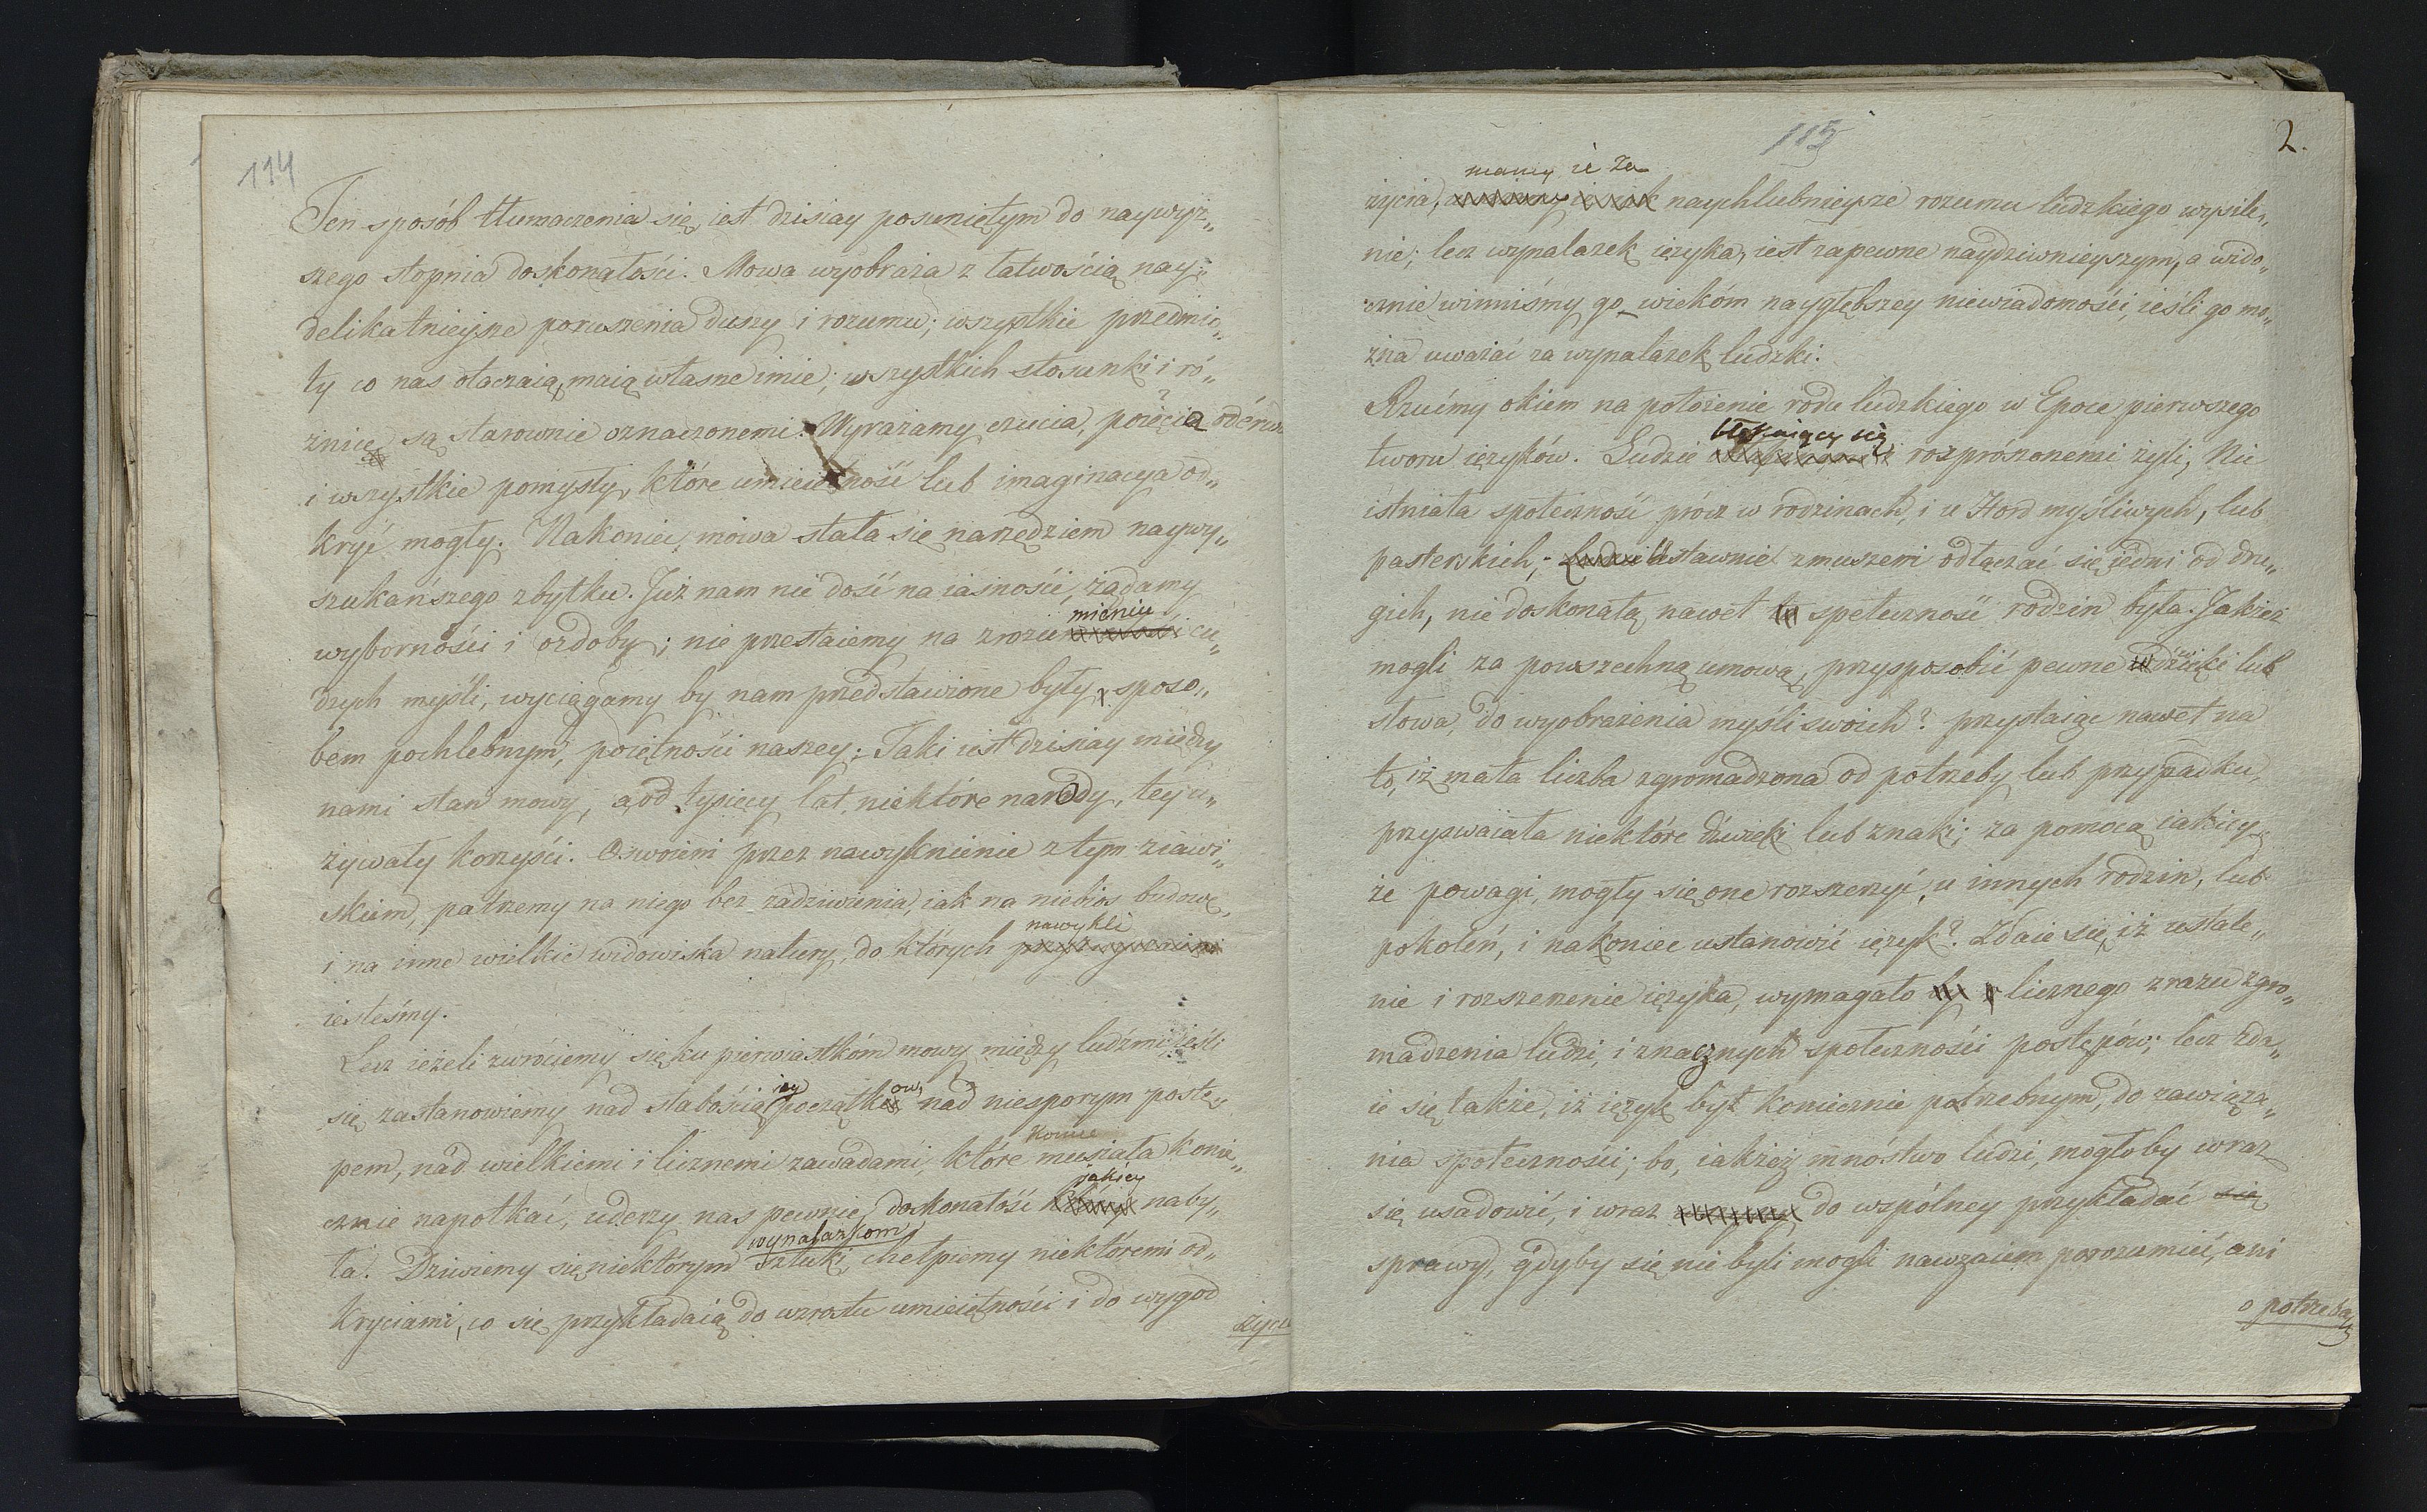 114
Ten sposób tłumaczenia się, iest dzisiay posuniętym do naywyż„
szego stopnia doskonałości. Mowa wyobraża z łatwością nay„
delikatnieysze poruszenia duszy i rozumu; wszystkie przedmio„
ty co nas otaczaią, maią własne imie; wszystkich stosunki i ró„
żnice są starownie oznaczonemi. Wyrażamy czucia, poięcia oderwa
i wszystkie pomysły, które umieiętność lub imaginacya od„
kryć mogły. Nakoniec, mowa stała się narzędziem naywy„
szukańszego zbytku. Już nam nie dość na iasności, żądamy
mieniu
wyborności i ozdoby; nie przestaiemy na zrozu cu„
dzych myśli, wyciągamy by nam przedstawione były sposo„
bem pochlebnym, poiętności naszey. Taki iest dzisiay między
nami stan mowy, a od tysięcy lat niektóre narody, tey u„
żywały korzyści. Oswoieni przez nawyknienie z tym ziawi„
skiem, patrzemy na niego bez zadziwienia, iak na niebios budowę,
nawykli
i na inne wielkie widowiska natury, do których
iesteśmy.
Lecz ieżeli zwróciemy się ku pierwiastkóm mowy między ludźmi, ieśli
iey ow,
się zastanowiemy nad słabością początk nad niesporym postę„
pem, nad wielkiemi i licznemi zawadami, które musiała konie„
iakiey
cznie napotkać, uderzy nas pewnie, doskonałość naby„
wynalazkom
ta. Dziwiemy się niektórym sztuki, chełpiemy niektóremi od„
kryciami, co się przykładaią do wzrostu umieiętności i do wygod
życia
115
2.
mamy ie za
życia, naychlubnieysze rozumu ludzkiego wysile„
nie; lecz wynalazek ięzyka, iest zapewne naydziwnieyszym, a wido„
cznie winniśmy go wiekóm naygłębszey niewiadomości, ieśli go mo„
żna uważać za wynalazek ludzki.
Rzućmy okiem na położenie rodu ludzkiego w Epoce pierwszego
błąkaiący się
tworu ięzyków. Ludzie rozprószonemi żyli, Nie
istniała społeczność prócz w rodzinach, i u Hord myśliwych, lub
pasterskich; Ustawnie zmuszeni odłączać się iedni od dru„
gich, nie doskonałą nawet ta społeczność rodzin była. Jakież
mogli za powszechną umową, przysposobić pewne dźwięki lub
słowa, do wyobrażenia myśli swoich? przystaiąc nawet na
to, iż mała liczba zgromadzona od potrzeby lub przypadku,
przyswaiała niektóre dźwięki lub znaki; za pomocą iakiey„
że powagi, mogły się one rozszerzyć, u innych rodzin, lub
pokoleń, i nakoniec ustanowić ięzyk? Zdaie się iż ustale„
nie i rozszerzenie ięzyka, wymagało licznego zrazu zgro„
madzenia ludzi, i znacznych społeczności postępów; lecz zda„
ie się także, iż ięzyk był koniecznie potrzebnym, do zawiąza„
nia społeczności; bo, iakżeż mnóstwo ludzi, mogłoby wraz
się usadowić, i wraz do wspólney przykładać się
sprawy, gdyby się nie byli mogli nawzaiem porozumieć, ani
o potrzebach